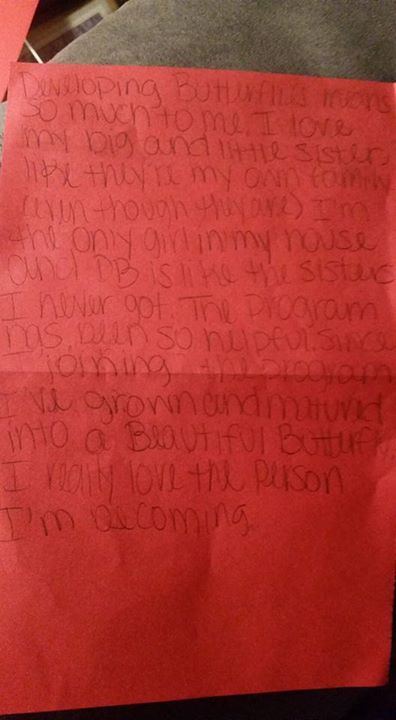 Developing Butterflies means
so much to me. I love
my big and little sisters
like they're my own family
(even though they are) I'm
the only girl in my house
and DB is like the sisters
I never got. The program
has been so helpful. Since
joining the program
I've grown and matured
into a Beautiful Butterfly.
I really love the person
I'm becoming.